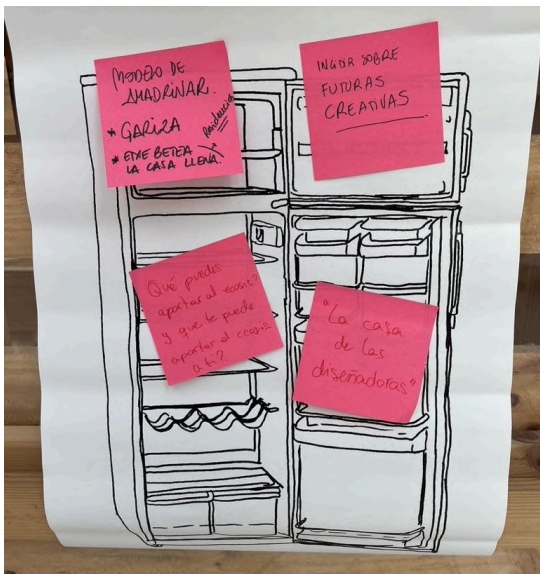 MODELO DE
AMADRINAR.
* GARIZA
Residencia
* ETXE BETEA
LA CASA LLENA.
INCIDIR SOBRE
FUTURAS
CREATIVAS
Qué puedes
aportar al ecosis.
y que te puede
aportar el ecosis
a ti?
"La casa
de las
diseñadoras"